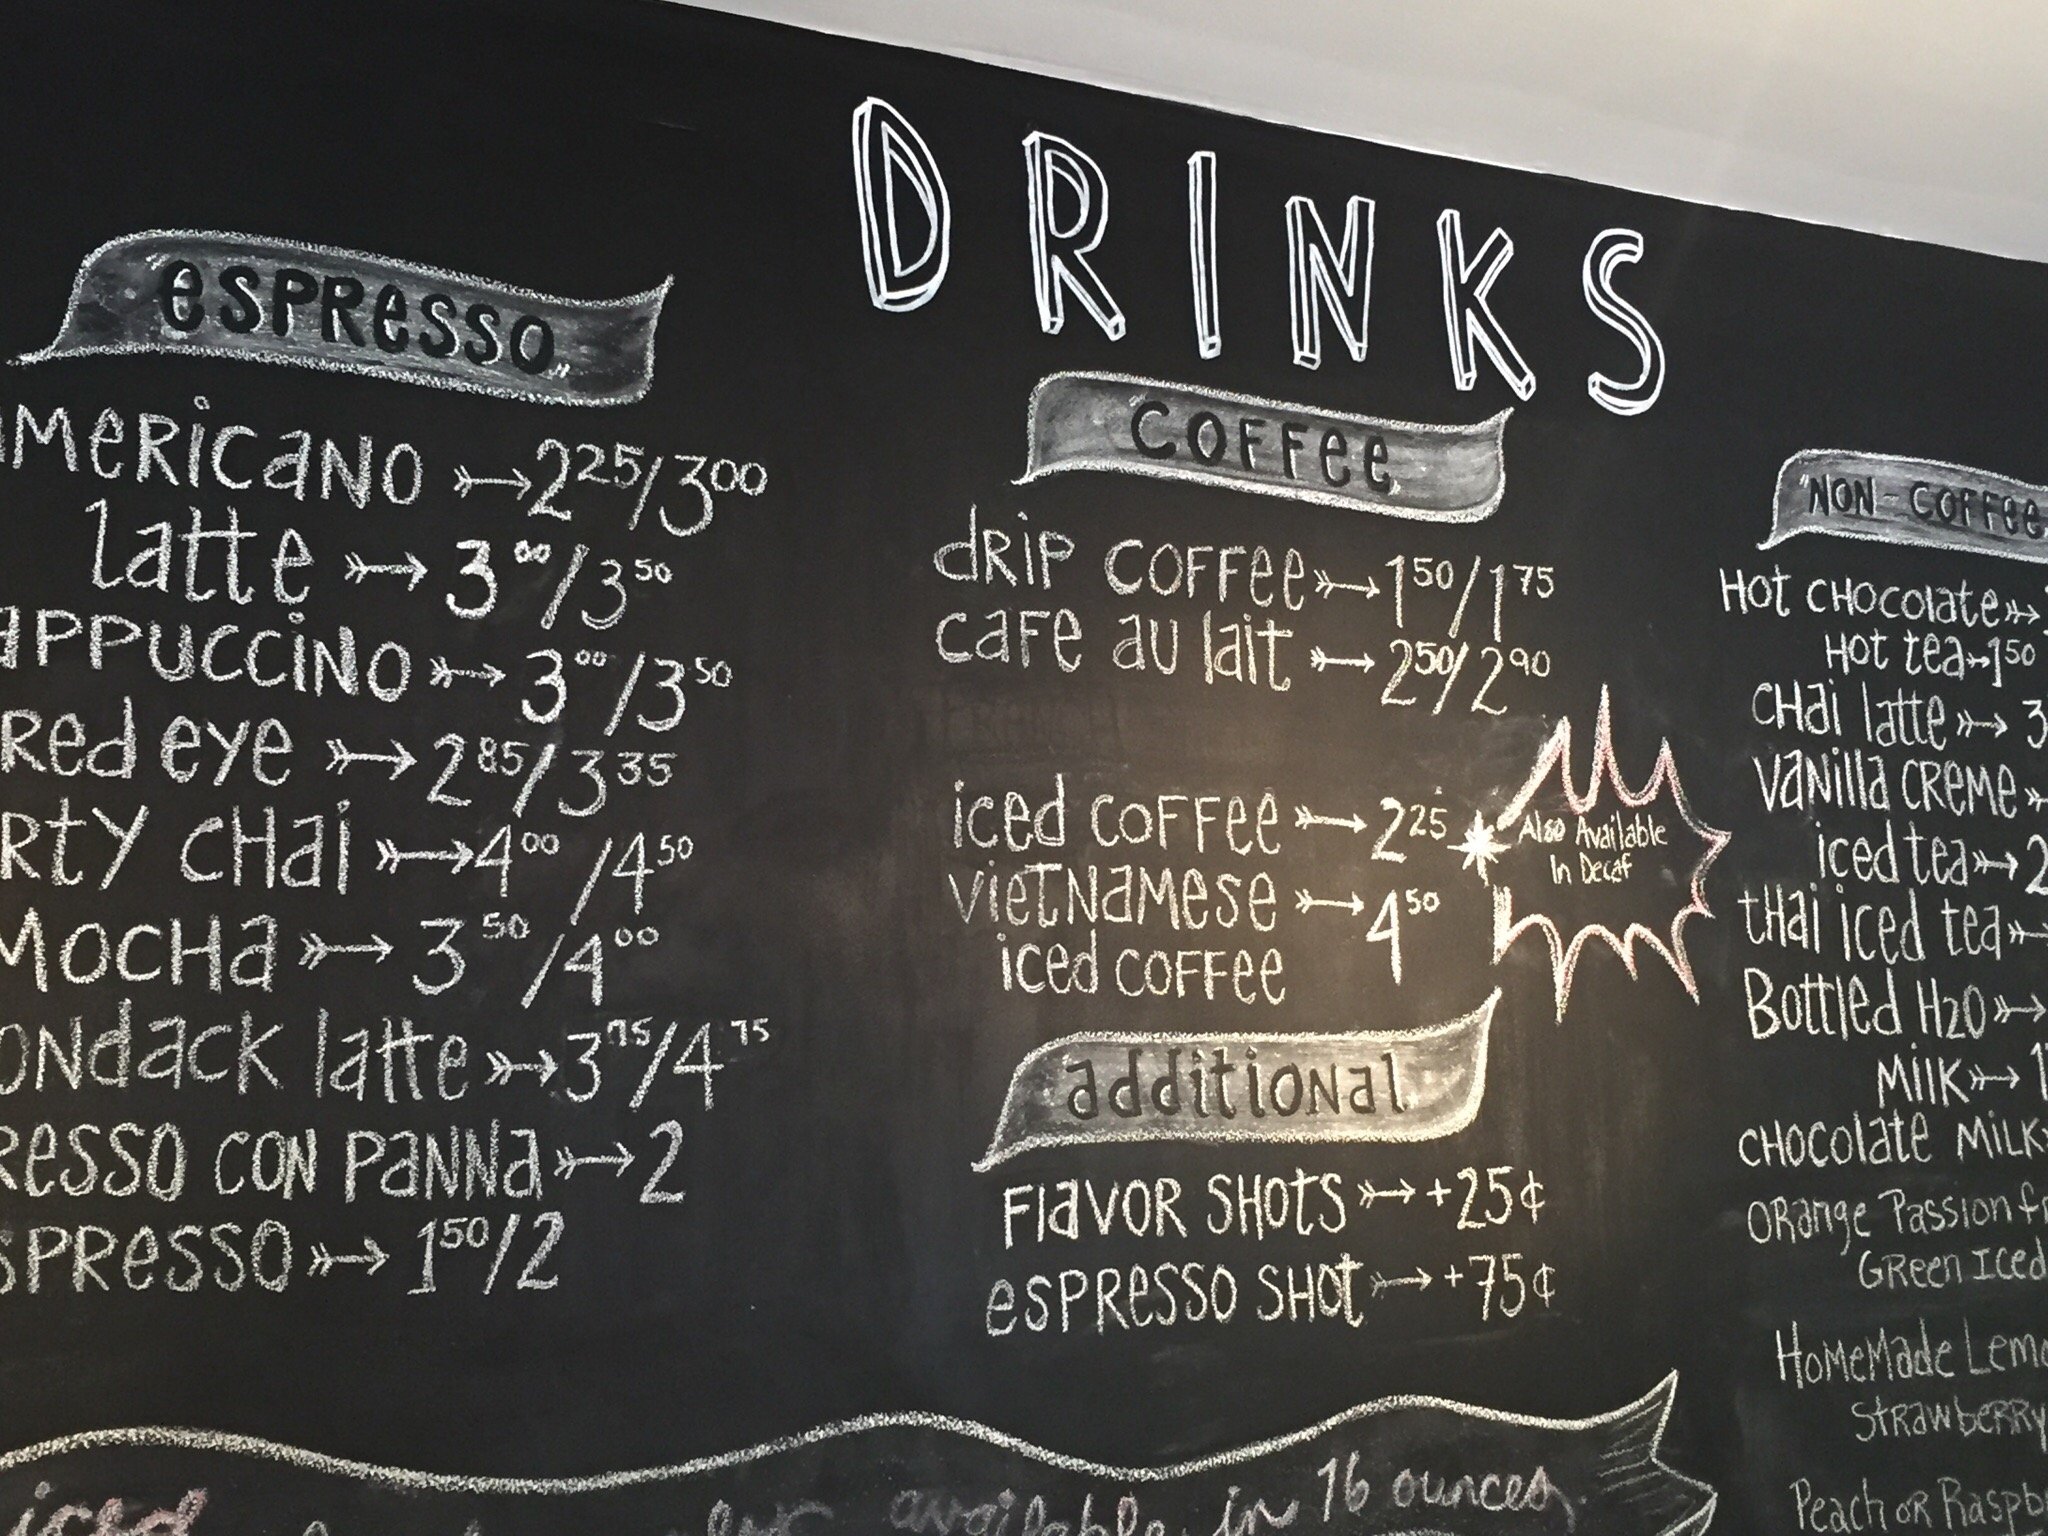 DRINKS
"espresso"
americano 2 25/3 00
latte 3 00/3 50
appuccino 3 00/3 50
red eye 2 85/3 35
rty chai 4 00/4 50
mocha 3 50/4 00
ondack latte 3 75/4 75
resso con panna 2
spresso 1 50/2
"coffee"
drip coffee 1 50/1 75
cafe au lait 2 50/2 90
iced coffee 2 25
vietnamese 4 50
iced coffee
Also Available
In Decaf
additional
flavor shots +25¢
espresso shot +75¢
"non-coffee
hot chocolate
hot tea 1 50
chai latte 3
vanilla creme
iced tea 2
thai iced tea
Bottled H2O
milk 1
chocolate milk
orange Passion
Green Iced
Homemade Lemo
Strawberry
Peach or Raspb
iced
available in 16 ounces